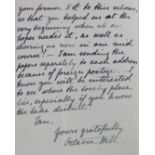 your 5th to this scheme,
so that you helped us at the
very beginning when all
hopes needed it, as well as
cheering us now in our mid
I am sending the
papers separately to each address
because of foreign postage. I
know you will be interested
to see where the lovely place
lies, especially if you know
the lake district.
I am,
Yours gratefully
Octavia Hill